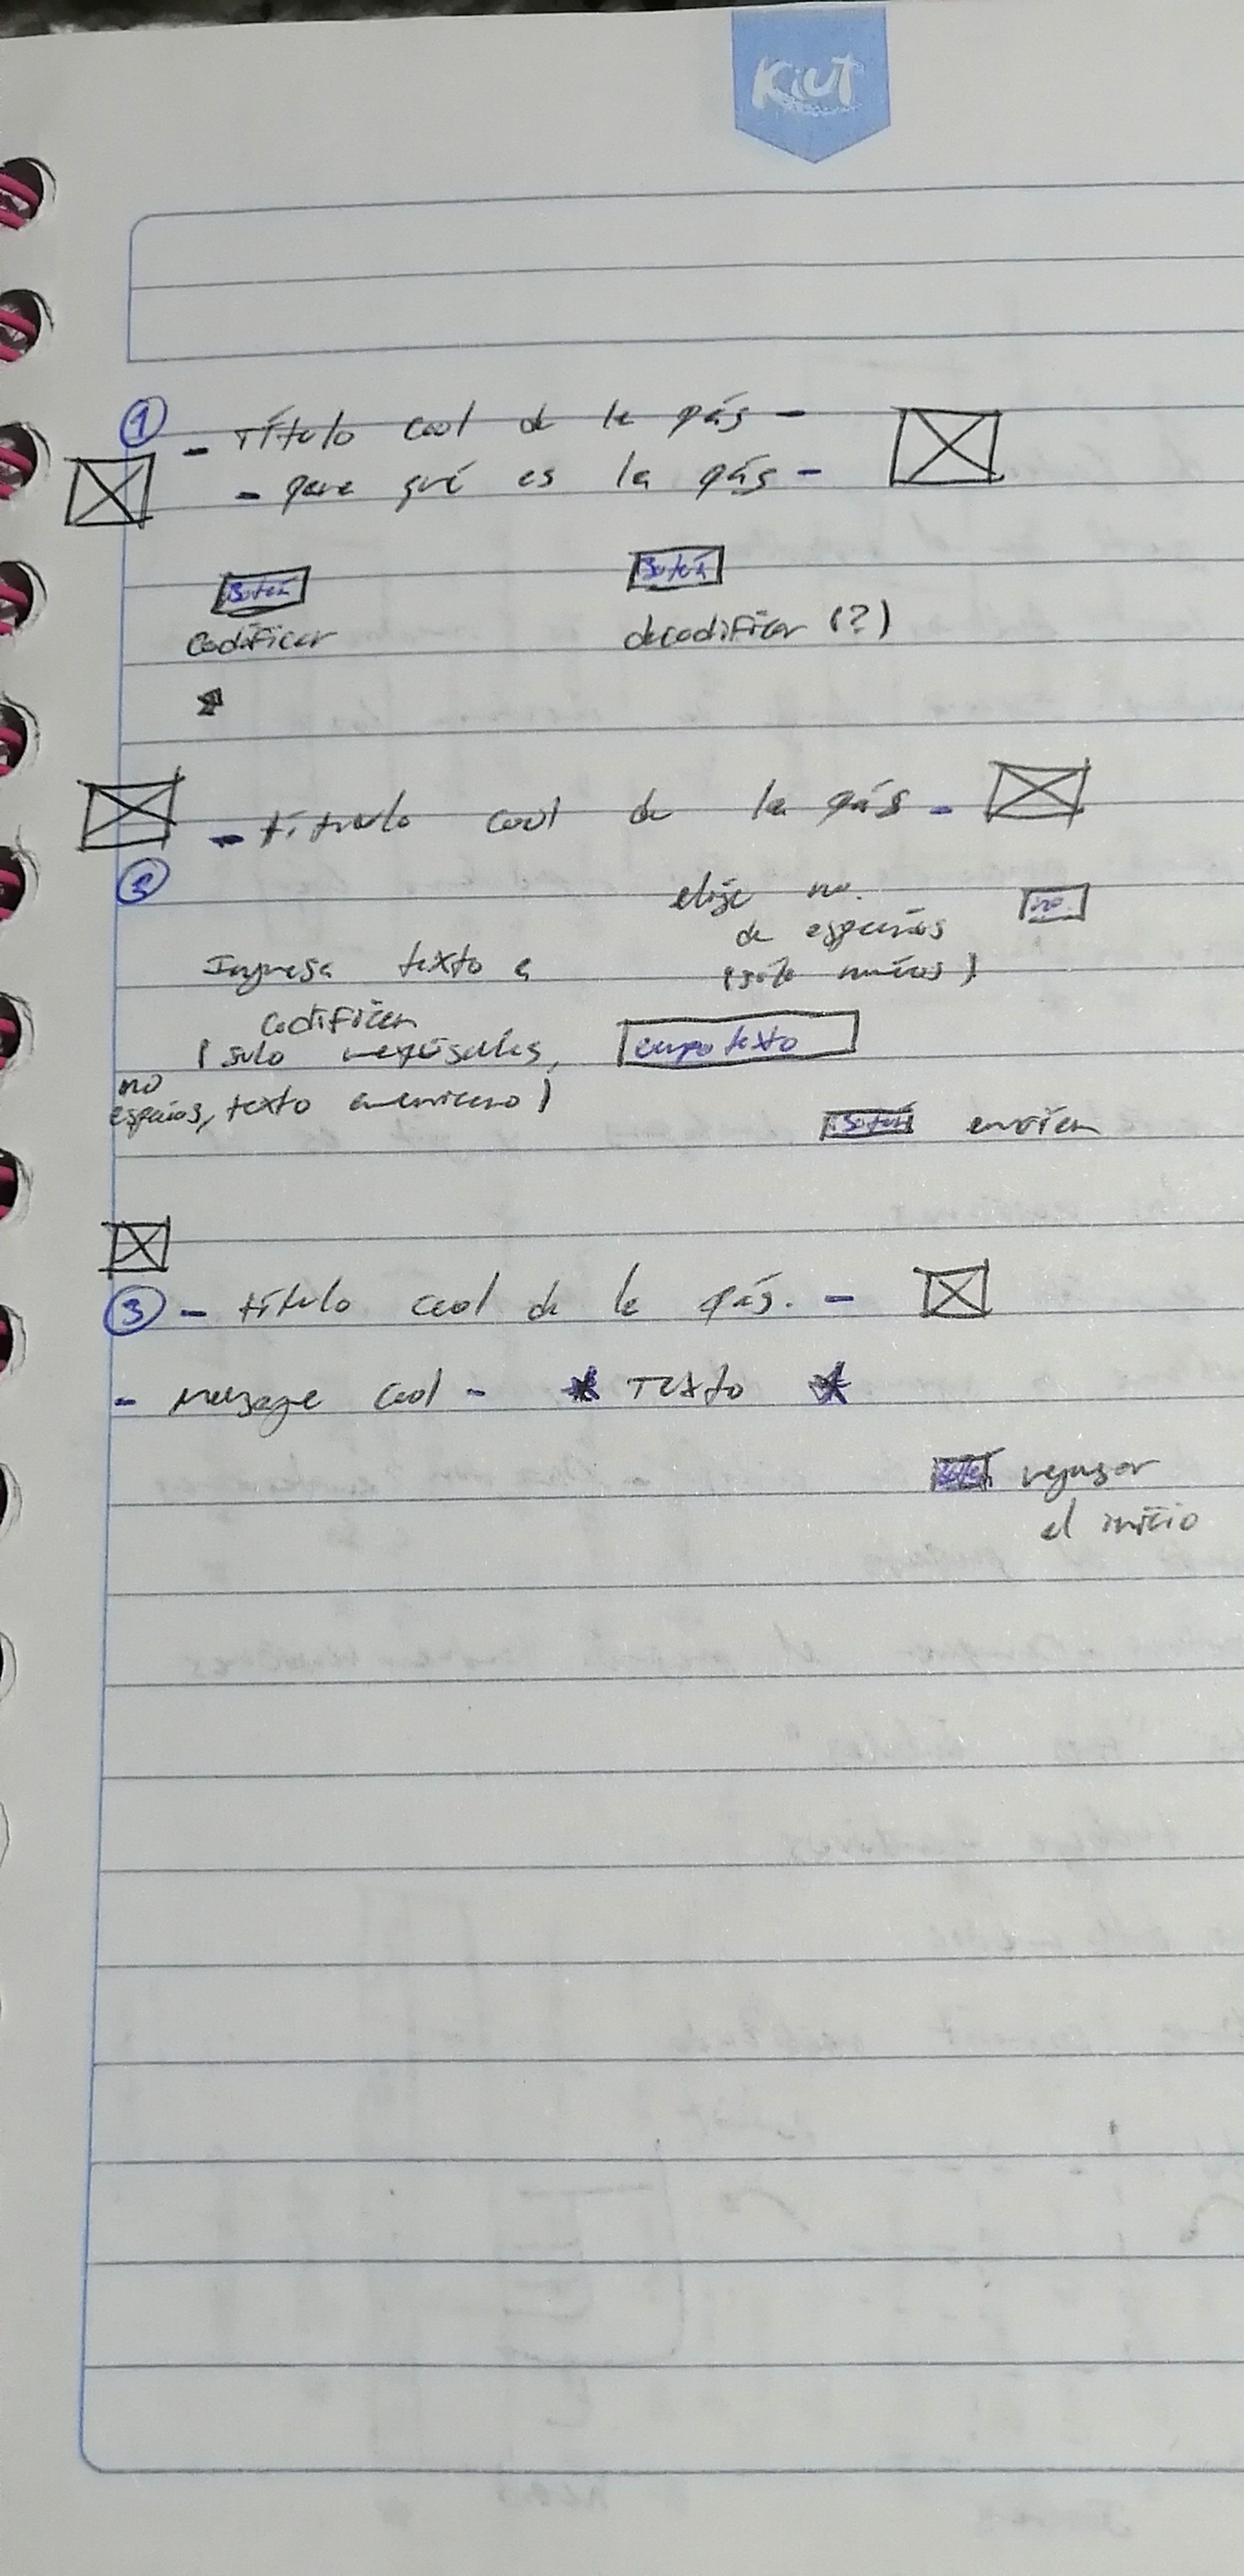 Kiut
1
- Título cool de la pág -
- para qué es la pág -
Botón
Botón
codificar
decodificar (?)
- título cool de la pág -
2
elige no.
no.
de espacios
Ingresa texto a
codificar
campo texto
(solo mayúsculas,
no
espacios, texto americano)
Botón enviar
3 - título cool de la pág. -
- mensaje cool - * Texto *
Botón regresar
al inicio